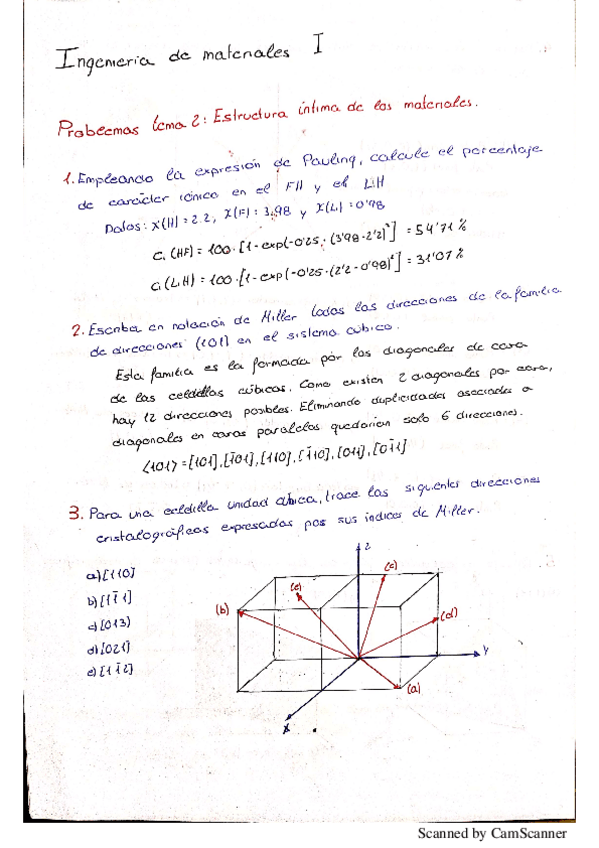 Ingenieria de materiales I
Problemas tema 2: Estructura íntima de los materiales.
1. Empleando la expresión de Pauling, calcule el porcentaje
de carácter iónico en el FH y el LiH
Datos: X(H) = 2.2, X(F) = 3.98 y X(Li) = 0'98
C.i (HF) = 100·[1-exp(-0'25·(3'98-2'2)²] = 54'71 %
C.i (LiH) = 100·[1-exp(-0'25·(2'2-0'98)²] = 31'07 %
2. Escriba en notación de Miller todas las direcciones de la familia
de direcciones ⟨101⟩ en el sistema cúbico.
Esta familia es la formada por las diagonales de cara
de las celdillas cúbicas. Como existen 2 diagonales por cara,
hay 12 direcciones posibles. Eliminando duplicidades asociadas a
diagonales en caras paralelas quedarían solo 6 direcciones.
⟨101⟩ = [101], [1̄01], [110], [1̄10], [011], [01̄1]
3. Para una celdilla unidad cúbica, trace las siguientes direcciones
cristalográficas expresadas por sus índices de Miller.
a) [110]
b) [11̄1]
c) [013]
d) [021]
e) [11̄2]
z
(c)
(e)
(b)
(d)
y
(a)
x
Scanned by CamScanner